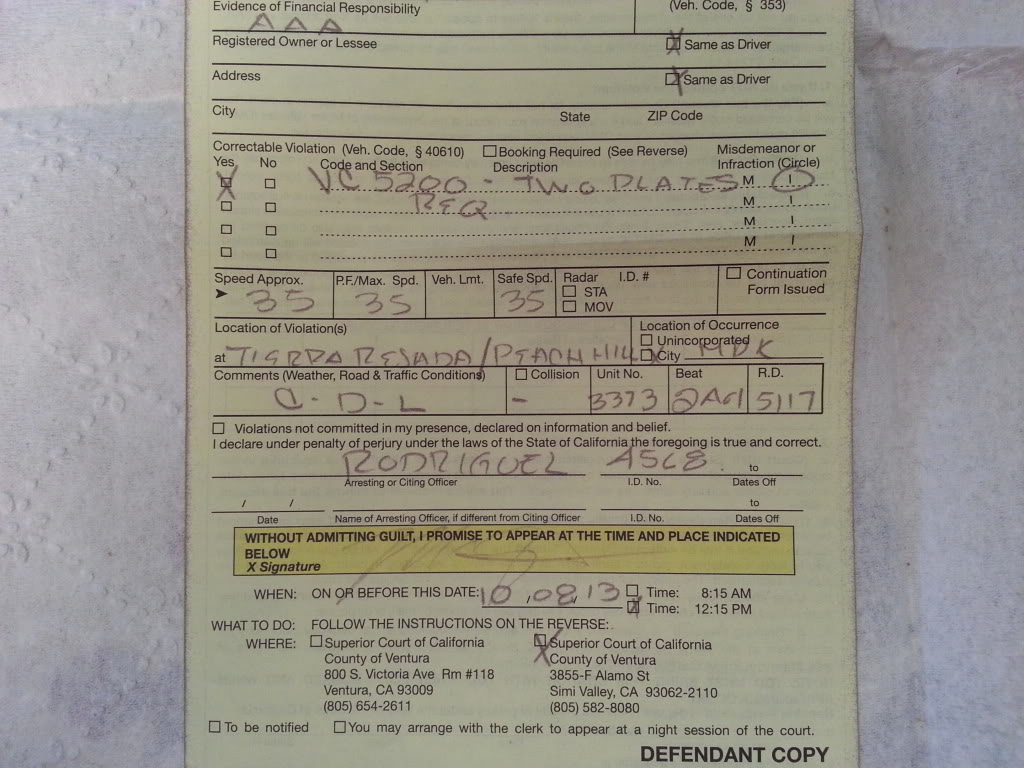 Evidence of Financial Responsibility
(Veh. Code, § 353)
AAA
Registered Owner or Lessee
Same as Driver
Address
Same as Driver
City State ZIP Code
Correctable Violation (Veh. Code, § 40610) Booking Required (See Reverse) Misdemeanor or
Yes No Code and Section Description Infraction (Circle)
VC 5200 - TWO PLATES M I
REQ M I
M I
M I
Speed Approx. P.F./Max. Spd. Veh. Lmt. Safe Spd. Radar I.D. # Continuation
Form Issued
35 35 35 STA
MOV
Location of Violation(s) Location of Occurrence
Unincorporated
at TIERRA REJADA/PEACH HILL City MPK
Comments (Weather, Road & Traffic Conditions) Collision Unit No. Beat R.D.
C-D-L - 3373 2A01 5117
Violations not committed in my presence, declared on information and belief.
I declare under penalty of perjury under the laws of the State of California the foregoing is true and correct.
RODRIGUEZ to
Arresting or Citing Officer I.D. No. Dates Off
/ / to
Date Name of Arresting Officer, if different from Citing Officer I.D. No. Dates Off
WITHOUT ADMITTING GUILT, I PROMISE TO APPEAR AT THE TIME AND PLACE INDICATED
BELOW
X Signature
WHEN: ON OR BEFORE THIS DATE: 10,08,13 Time: 8:15 AM
Time: 12:15 PM
WHAT TO DO: FOLLOW THE INSTRUCTIONS ON THE REVERSE:
WHERE: Superior Court of California
County of Ventura
800 S. Victoria Ave Rm #118
Ventura, CA 93009
(805) 654-2611
Superior Court of California
County of Ventura
3855-F Alamo St
Simi Valley, CA 93062-2110
(805) 582-8080
To be notified You may arrange with the clerk to appear at a night session of the court.
DEFENDANT COPY